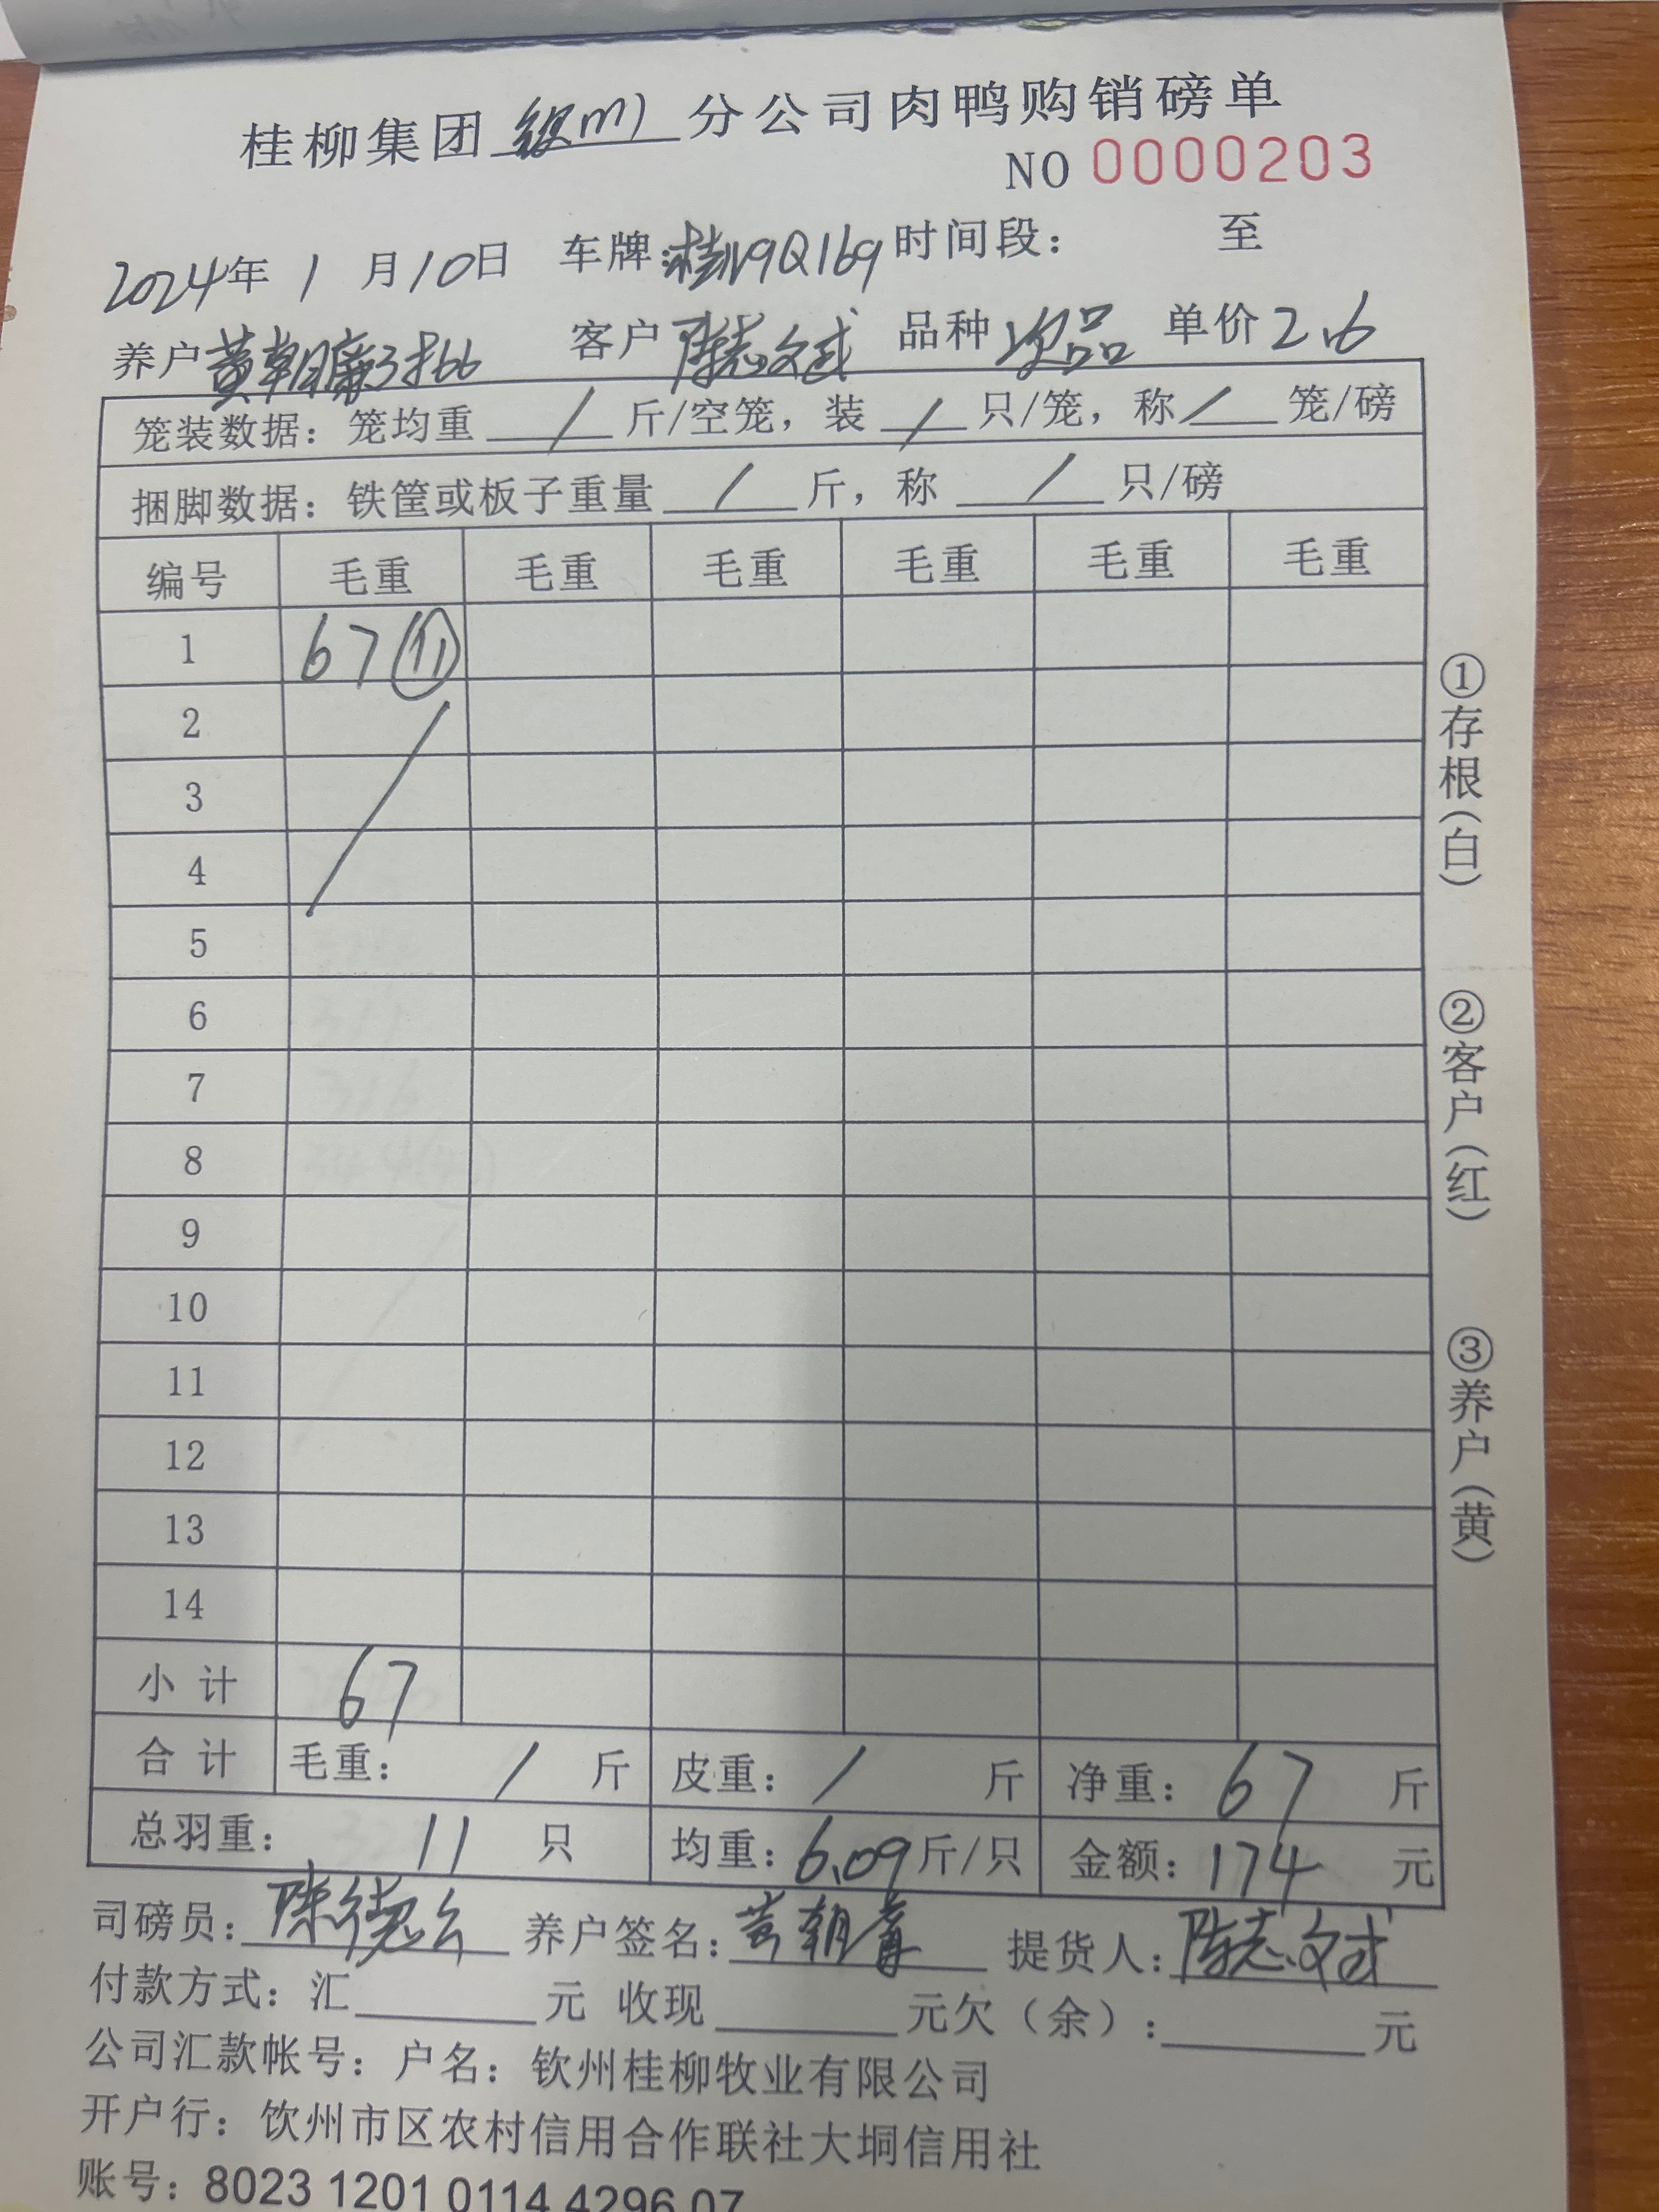 桂柳集团 钦州 分公司肉鸭购销磅单
NO 0000203
2024年 1 月 10 日 车牌:桂N9Q169 时间段: 至
养户 黄朝 客户 陈志文 品种 次品 单价 2.6
笼装数据: 笼均重 / 斤/空笼, 装 / 只/笼, 称 / 笼/磅
捆脚数据: 铁筐或板子重量 / 斤, 称 / 只/磅
编号 毛重 毛重 毛重 毛重 毛重 毛重
1 67 (11)
2
3
4
5
6
7
8
9
10
11
12
13
14
小 计 67
合 计 毛重: / 斤 皮重: / 斤 净重: 67 斤
总羽重: 11 只 均重: 6.09 斤/只 金额: 174 元
司磅员: 陈德 养户签名: 黄朝 提货人: 陈志文
付款方式: 汇 元 收现 元欠(余): 元
公司汇款帐号: 户名: 钦州桂柳牧业有限公司
开户行: 饮州市区农村信用合作联社大垌信用社
账号: 8023 1201 0114 4296 07
①存根(白)
②客户(红)
③养户(黄)